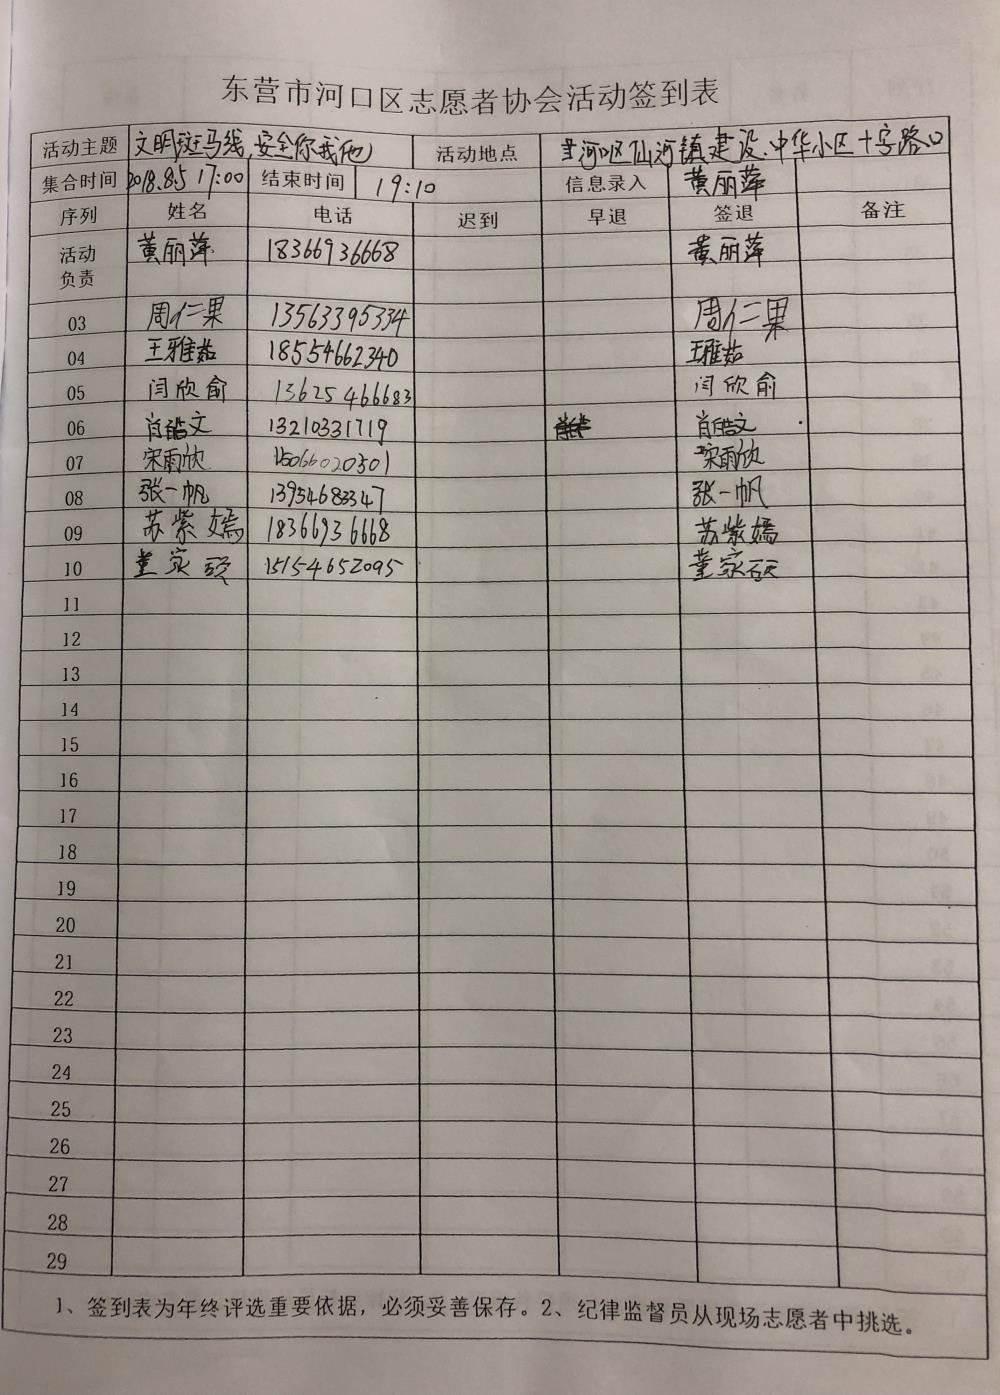 东营市河口区志愿者协会活动签到表
活动主题 文明斑马线,安全你我他 活动地点 河口区仙河镇建设.中华小区十字路口
集合时间 2018.8.5 17:00 结束时间 19:10 信息录入 黄丽萍
序列 姓名 电话 迟到 早退 签退 备注
活动 黄丽萍 18366936668 黄丽萍
负责
03 周仁果 13563395334 周仁果
04 王雅茹 18554662340 王雅茹
05 闫欣俞 13625466683 闫欣俞
06 肖皓文 13210331719 肖皓文
07 宋雨欣 15066020301 宋雨欣
08 张一帆 13954683347 张一帆
09 苏紫嫣 18366936668 苏紫嫣
10 董家硕 15154652095 董家硕
11
12
13
14
15
16
17
18
19
20
21
22
23
24
25
26
27
28
29
1、签到表为年终评选重要依据，必须妥善保存。2、纪律监督员从现场志愿者中挑选。